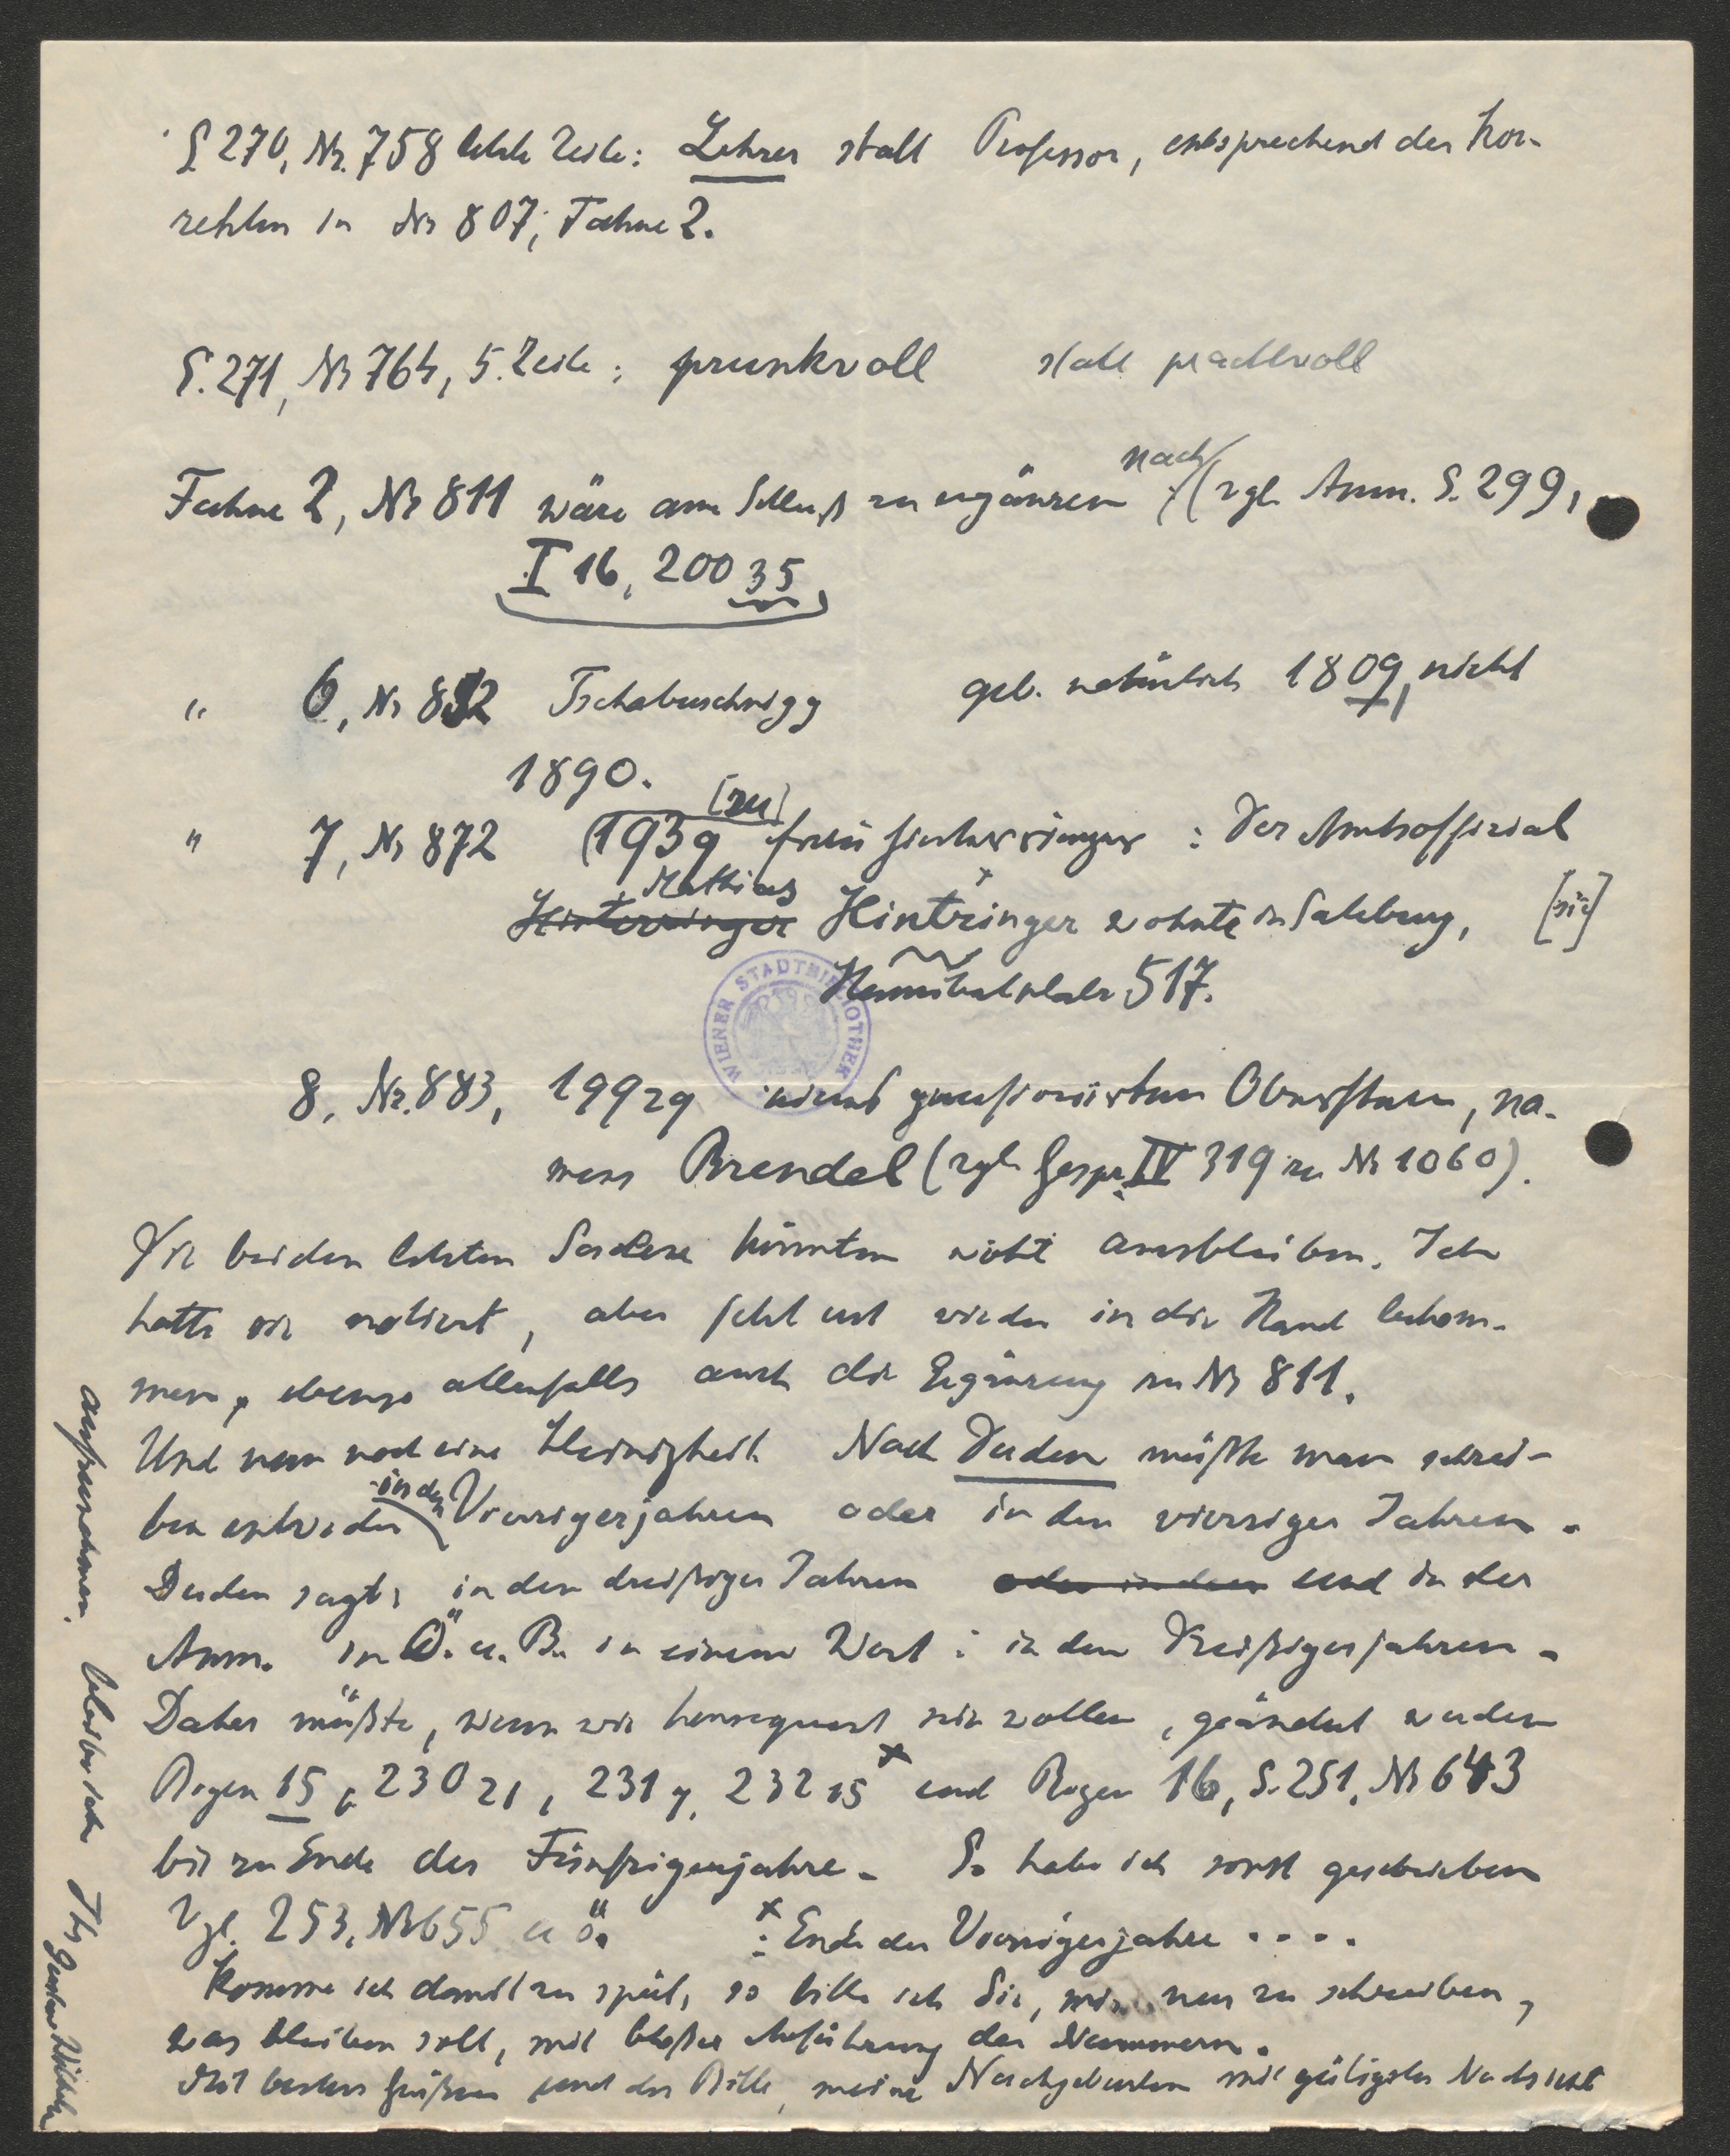 S. 270, Nr. 758 letzte Zeile: Lehrer statt Professor, entsprechend der Kor-
rektur in Nr 807, Fahne 2.
S. 271, Nr 764, 5. Zeile: prunkvoll statt prachtvoll
nach
Fahne 2, Nr 811 wäre am Schluß zu ergänzen (vgl. Anm. S. 299,
I 16, 200 35)
" 6, Nr 852 Tschabuschnigg geb. natürlich 1809, nicht
1890.
[zu]
" 7, Nr 872 (193 9 Frau Hinterringer: Der Amtsoffizial
Mathias
Hinterringer Hintringer wohnte in Salzburg, [sic]
Hannibalplatz 517.
WIENER STADTBIBLIOTHEK
8, Nr. 883, 199 29 eines pensionierten Obersten, na-
mens Brendel (vgl. Gespr. IV 319 zu Nr 1060).
Die beiden letzten Sachen könnten wohl ausbleiben. Ich
hatte sie notiert, aber jetzt erst wieder in die Hand bekom-
men, ebenso allenfalls auch die Ergänzung zu Nr 811.
Und nun noch eine Kleinigkeit. Nach Duden müßte man schrei-
in den
ben entweder Vierzigerjahren oder in den vierziger Jahren.
Duden sagt: in den dreißiger Jahren oder in den und in der
Anm. in Ö. u. B. in einem Wort: in den Dreißigerjahren.
Daher müßte, wenn wir konsequent sein wollen, geändert werden
Bogen 15, 230 21, 231 7, 232 15 x und Bogen 16, S. 251, Nr 643
bis zu Ende der Fünfzigerjahre. So habe ich sonst geschrieben
Vgl. 253, Nr 655 u ö. x: Ende der Vierzigerjahre ....
Komme ich damit zu spät, so bitte ich Sie, mir nur zu schreiben,
was bleiben soll, mit bloßer Anführung der Nummern.
Mit besten Grüßen und der Bitte, meine Nachgeburten mit gütigster Nachsicht
aufzunehmen, bleibe ich Ihr
Gustav Wilhelm